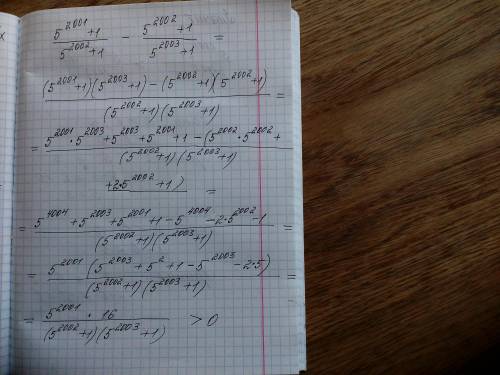 (5^2001 + 1)/(5^2002 + 1) − (5^2002 + 1)/(5^2003 + 1) =
((5^2001 + 1)(5^2003 + 1) − (5^2002 + 1)(5^2002 + 1))/((5^2002 + 1)(5^2003 + 1)) =
= (5^2001 · 5^2003 + 5^2003 + 5^2001 + 1 − (5^2002 · 5^2002 +)/((5^2002 + 1)(5^2003 + 1))
+ 2·5^2002 + 1) =
= (5^4004 + 5^2003 + 5^2001 + 1 − 5^4004 − 2·5^2002 − 1)/((5^2002 + 1)(5^2003 + 1)) =
= 5^2001 (5^2003 + 5^2 + 1 − 5^2003 − 2·5)/((5^2002 + 1)(5^2003 + 1)) =
= (5^2001 · 16)/((5^2002 + 1)(5^2003 + 1)) > 0